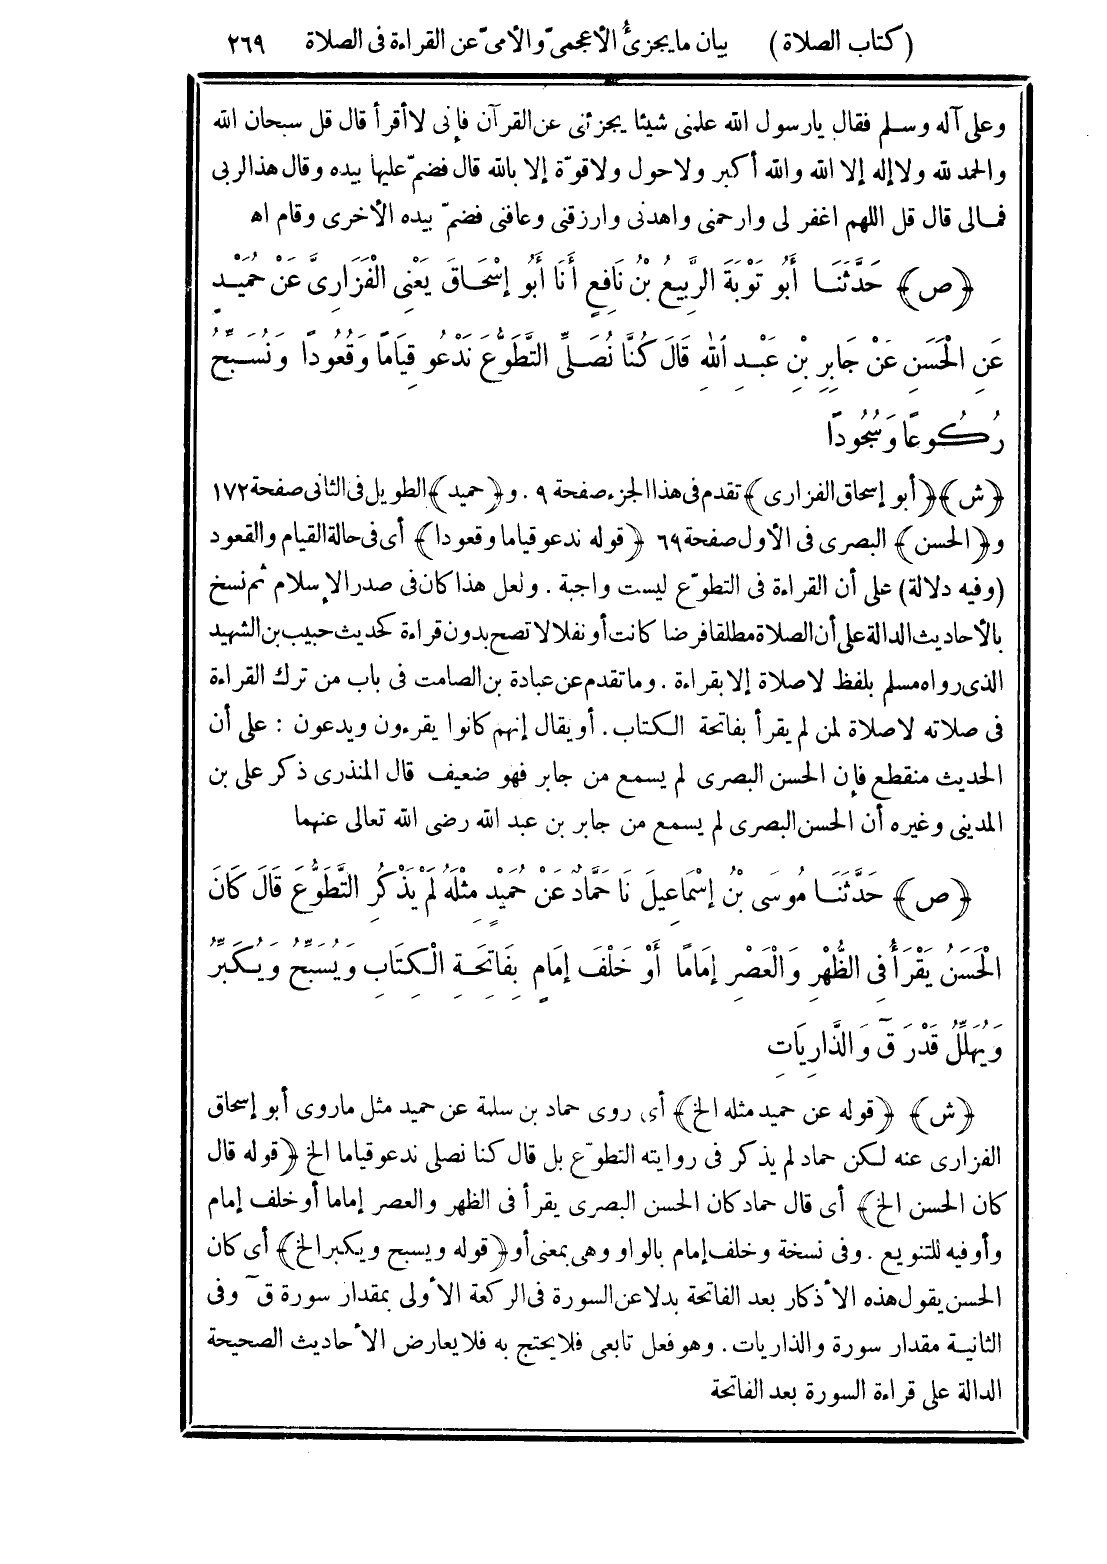 (كتاب الصلاة) بيان ما يجزئ الأعجمىّ والأمىّ عن القراءة فى الصلاة ٢٦٩
وعلى آله وسلم فقال يارسول الله علمنى شيئا يجزئنى عن القرآن فإنى لاأقرأ قال قل سبحان الله
والحمد لله ولاإله إلا الله والله أكبر ولاحول ولاقوّة إلا بالله قال فضمّ عليها بيده وقال هذا لربى
فمالى قال قل اللهم اغفر لى وارحمنى واهدنى وارزقنى وعافنى فضمّ بيده الأخرى وقام اه
﴿ص﴾ حَدَّثَنَا أَبُو تَوْبَةَ الرَّبِيعُ بْنُ نَافِعٍ أَنَا أَبُو إِسْحَاقَ يَعْنِى الْفَزَارِىَّ عَنْ حُمَيْدٍ
عَنِ الْحَسَنِ عَنْ جَابِرِ بْنِ عَبْدِ اللهِ قَالَ كُنَّا نُصَلِّى التَّطَوُّعَ نَدْعُو قِيَامًا وَقُعُودًا وَنُسَبِّحُ
رُكُوعًا وَسُجُودًا
﴿ش﴾ ﴿أبو إسحاق الفزارى﴾ تقدم فى هذا الجزء صفحة ٩ . و﴿حميد﴾ الطويل فى الثانى صفحة ١٧٢
و﴿الحسن﴾ البصرى فى الأول صفحة ٦٩ ﴿قوله ندعو قياما وقعودا﴾ أى فى حالة القيام والقعود
(وفيه دلالة) على أن القراءة فى التطوّع ليست واجبة . ولعل هذا كان فى صدر الإسلام ثم نسخ
بالأحاديث الدالة على أن الصلاة مطلقا فرضا كانت أو نفلا لا تصح بدون قراءة كحديث حبيب بن الشهيد
الذى رواه مسلم بلفظ لاصلاة إلا بقراءة . وما تقدم عن عبادة بن الصامت فى باب من ترك القراءة
فى صلاته لاصلاة لمن لم يقرأ بفاتحة الكتاب . أو يقال إنهم كانوا يقرءون ويدعون : على أن
الحديث منقطع فإن الحسن البصرى لم يسمع من جابر فهو ضعيف قال المنذرى ذكر على بن
المدينى وغيره أن الحسن البصرى لم يسمع من جابر بن عبد الله رضى الله تعالى عنهما
﴿ص﴾ حَدَّثَنَا مُوسَى بْنُ إِسْمَاعِيلَ نَا حَمَّادٌ عَنْ حُمَيْدٍ مِثْلَهُ لَمْ يَذْكُرِ التَّطَوُّعَ قَالَ كَانَ
الْحَسَنُ يَقْرَأُ فِى الظُّهْرِ وَالْعَصْرِ إِمَامًا أَوْ خَلْفَ إِمَامٍ بِفَاتِحَةِ الْكِتَابِ وَيُسَبِّحُ وَيُكَبِّرُ
وَيُهَلِّلُ قَدْرَ قٓ وَالذَّارِيَاتِ
﴿ش﴾ ﴿قوله عن حميد مثله الخ﴾ أى روى حماد بن سلمة عن حميد مثل ماروى أبو إسحاق
الفزارى عنه لكن حماد لم يذكر فى روايته التطوّع بل قال كنا نصلى ندعو قياما الخ ﴿قوله قال
كان الحسن الخ﴾ أى قال حماد كان الحسن البصرى يقرأ فى الظهر والعصر إماما أو خلف إمام
وأو فيه للتنويع . وفى نسخة وخلف إمام بالواو وهى بمعنى أو ﴿قوله ويسبح ويكبر الخ﴾ أى كان
الحسن يقول هذه الأذكار بعد الفاتحة بدلا عن السورة فى الركعة الأولى بمقدار سورة قٓ وفى
الثانية مقدار سورة والذاريات . وهو فعل تابعى فلا يحتج به فلا يعارض الأحاديث الصحيحة
الدالة على قراءة السورة بعد الفاتحة